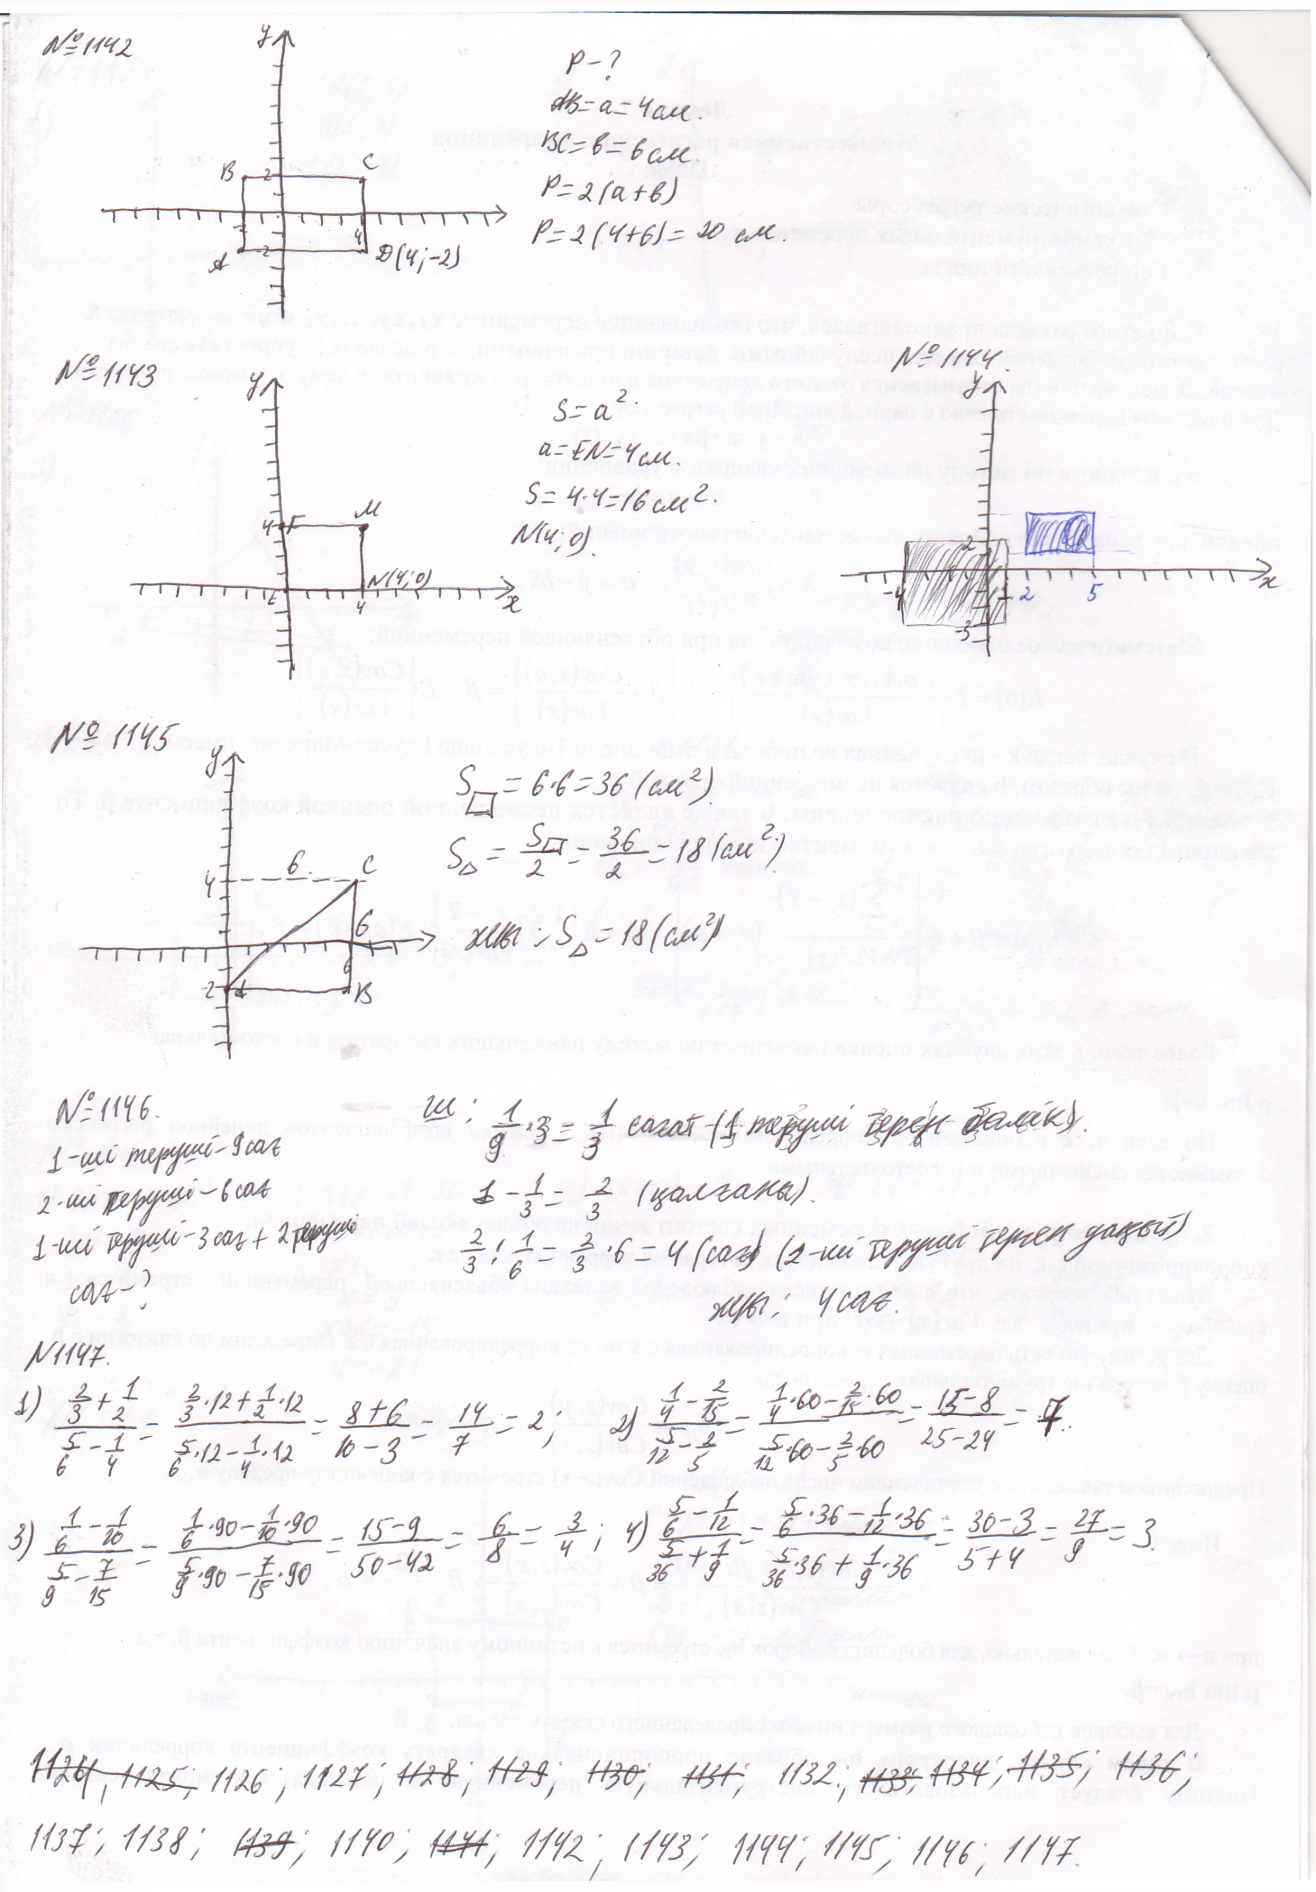 №1142
y
P-?
AB=a=4см.
BC=b=6см.
P=2(a+b)
P=2(4+6)=20 см.
B 2 C
x
-2 4
A D(4;-2)
№1143
y
S=a².
a=EN=4см.
S=4·4=16см².
N(4;0).
4 F M
N(4;0)
4 x
№1144.
y
2
-4 1 2 5 x
-3
№1145
y
S▱=6·6=36(см²)
S△=S▱/2=36/2=18(см²)
жбы - S△=18(см²)
4 6. C
6
6
-2 A B
№1146.
1-ші теруші-9сағ
2-ші теруші-6сағ
1-ші теруші-3сағ+2теруші
сағ-?
Ш: 1/9·3=1/3 сағат (1 теруші терген бөлік).
1-1/3=2/3 (қалғаны).
2/3:1/6=2/3·6=4(сағ) (2-ші теруші терген уақыт)
жбы: 4сағ.
№1147.
1) (2/3+1/2)/(5/6-1/4)=(2/3·12+1/2·12)/(5/6·12-1/4·12)=(8+6)/(10-3)=14/7=2, 2) (1/4-2/15)/(5/12-2/5)=(1/4·60-2/15·60)/(5/12·60-2/5·60)=(15-8)/(25-24)=7.
3) (1/6-1/10)/(5/9-7/15)=(1/6·90-1/10·90)/(5/9·90-7/15·90)=(15-9)/(50-42)=6/8=3/4; 4) (5/6-1/12)/(5/36+1/9)=(5/6·36-1/12·36)/(5/36·36+1/9·36)=(30-3)/(5+4)=27/9=3.
1124; 1125; 1126; 1127; 1128; 1129; 1130; 1131; 1132; 1133; 1134; 1135; 1136;
1137; 1138; 1139; 1140; 1141; 1142; 1143; 1144; 1145; 1146; 1147.